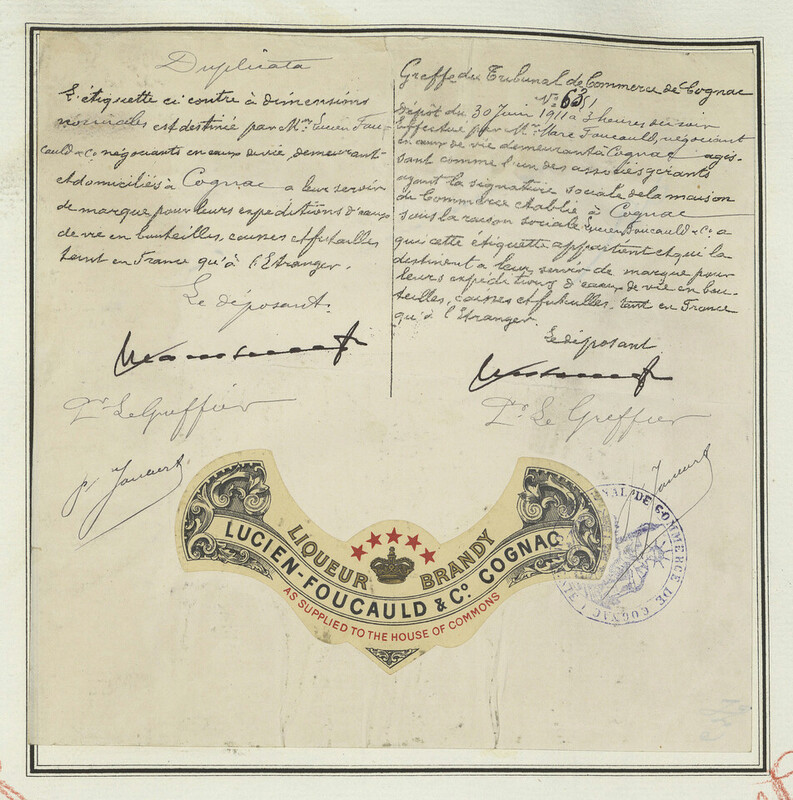 Duplicata
L'étiquette ci contre à dimensions
nominales est destinée par Mrs Lucien Fou-
cauld & Co négociants en eaux de vie, demeurant
et domiciliés à Cognac a leur servir
de marque pour leurs expéditions d'eaux
de vie en bouteilles, caisses et futailles
tant en France qu'à l'Etranger.
Le déposant.
Pr Le Greffier
Greffe du Tribunal de Commerce de Cognac
No 6351
Dépôt du 30 Juin 1911 à 3 heures du soir
Effectué par Mr Marc Foucauld, négociant
en eaux de vie demeurant à Cognac agis-
sant comme l'un des associés gérants
ayant la signature sociale de la maison
de Commerce établie à Cognac
sous la raison sociale Lucien Foucauld & Co a
qui cette étiquette appartient et qui la
destinent a leur servir de marque pour
leurs expéditions d'eaux de vie en bou-
teilles, caisses et futailles, tant en France
qu'à l'Etranger.
Le déposant
Pr Le Greffier
LIQUEUR BRANDY
LUCIEN-FOUCAULD & Co COGNAC
AS SUPPLIED TO THE HOUSE OF COMMONS
DE COMMERCE DE COGNAC